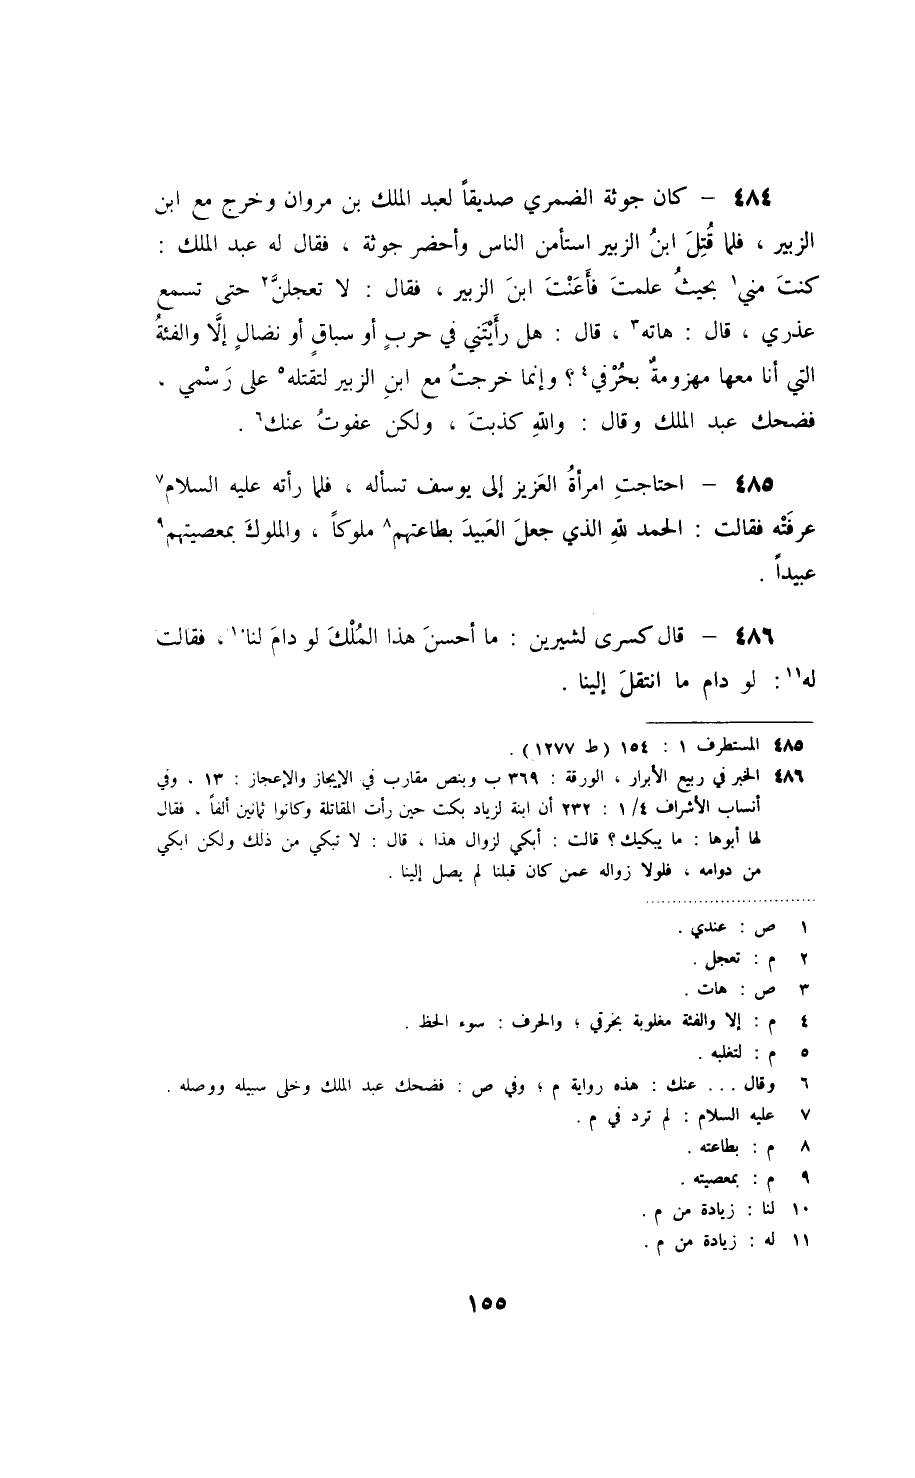 ٤٨٤ – كان جوثة الضمري صديقاً لعبد الملك بن مروان وخرج مع ابن
الزبير ، فلما قُتِلَ ابنُ الزبير استأمن الناس وأحضر جوثة ، فقال له عبد الملك :
كنتَ مني١ بحيثُ علمتَ فأَعَنْتَ ابنَ الزبير ، فقال : لا تعجلنَّ٢ حتى تسمع
عذري ، قال : هاته٣ ، قال : هل رأَيْتَني في حربٍ أو سباقٍ أو نضالٍ إلَّا والفئةُ
التي أنا معها مهزومةٌ بحُرْفي٤ ؟ وإنما خرجتُ مع ابنِ الزبير لتقتله٥ على رَسْمي .
فضحك عبد الملك وقال : واللهِ كذبتَ ، ولكن عفوتُ عنك٦ .
٤٨٥ – احتاجتِ امرأةُ العَزيز إلى يوسف تسأله ، فلما رأته عليه السلام٧
عرفَتْه فقالت : الحمد للهِ الذي جعلَ العَبيدَ بطاعتهم٨ ملوكاً ، والملوكَ بمعصيتهم٩
عبيداً .
٤٨٦ – قال كسرى لشيرين : ما أحسنَ هذا المُلْكَ لو دامَ لنا١٠ ، فقالت
له١١ : لو دام ما انتقلَ إلينا .
٤٨٥ المستطرف ١ : ١٥٤ (ط ١٢٧٧) .
٤٨٦ الخبر في ربيع الأبرار ، الورقة : ٣٦٩ ب وبنص مقارب في الإيجاز والإعجاز : ١٣ . وفي
أنساب الأشراف ٤/ ١ : ٢٣٢ أن ابنة لزياد بكت حين رأت المقاتلة وكانوا ثمانين ألفاً . فقال
لها أبوها : ما يبكيك ؟ قالت : أبكي لزوال هذا ، قال : لا تبكي من ذلك ولكن ابكي
من دوامه ، فلولا زواله عمن كان قبلنا لم يصل إلينا .
١ ص : عندي .
٢ م : تعجل .
٣ ص : هات .
٤ م : إلا والفئة مغلوبة بخرقي ؛ والحرف : سوء الحظ .
٥ م : لتغلبه .
٦ وقال ... عنك : هذه رواية م ؛ وفي ص : فضحك عبد الملك وخلى سبيله ووصله .
٧ عليه السلام : لم ترد في م .
٨ م : بطاعته .
٩ م : بمعصيته .
١٠ لنا : زيادة من م .
١١ له : زيادة من م .
١٥٥